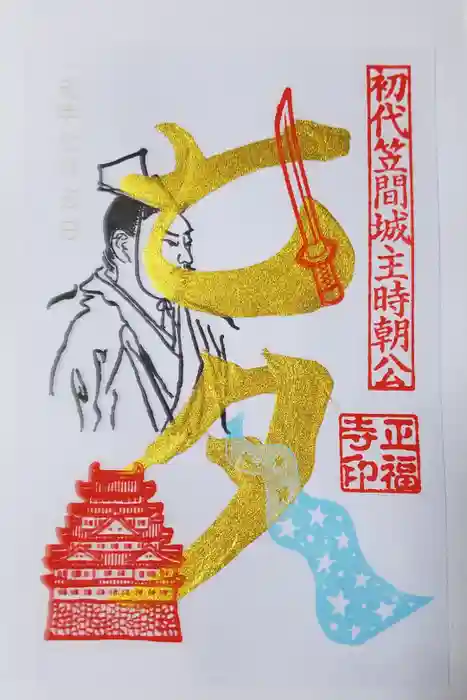 初代笠間城主時朝公
正福
寺印
七夕